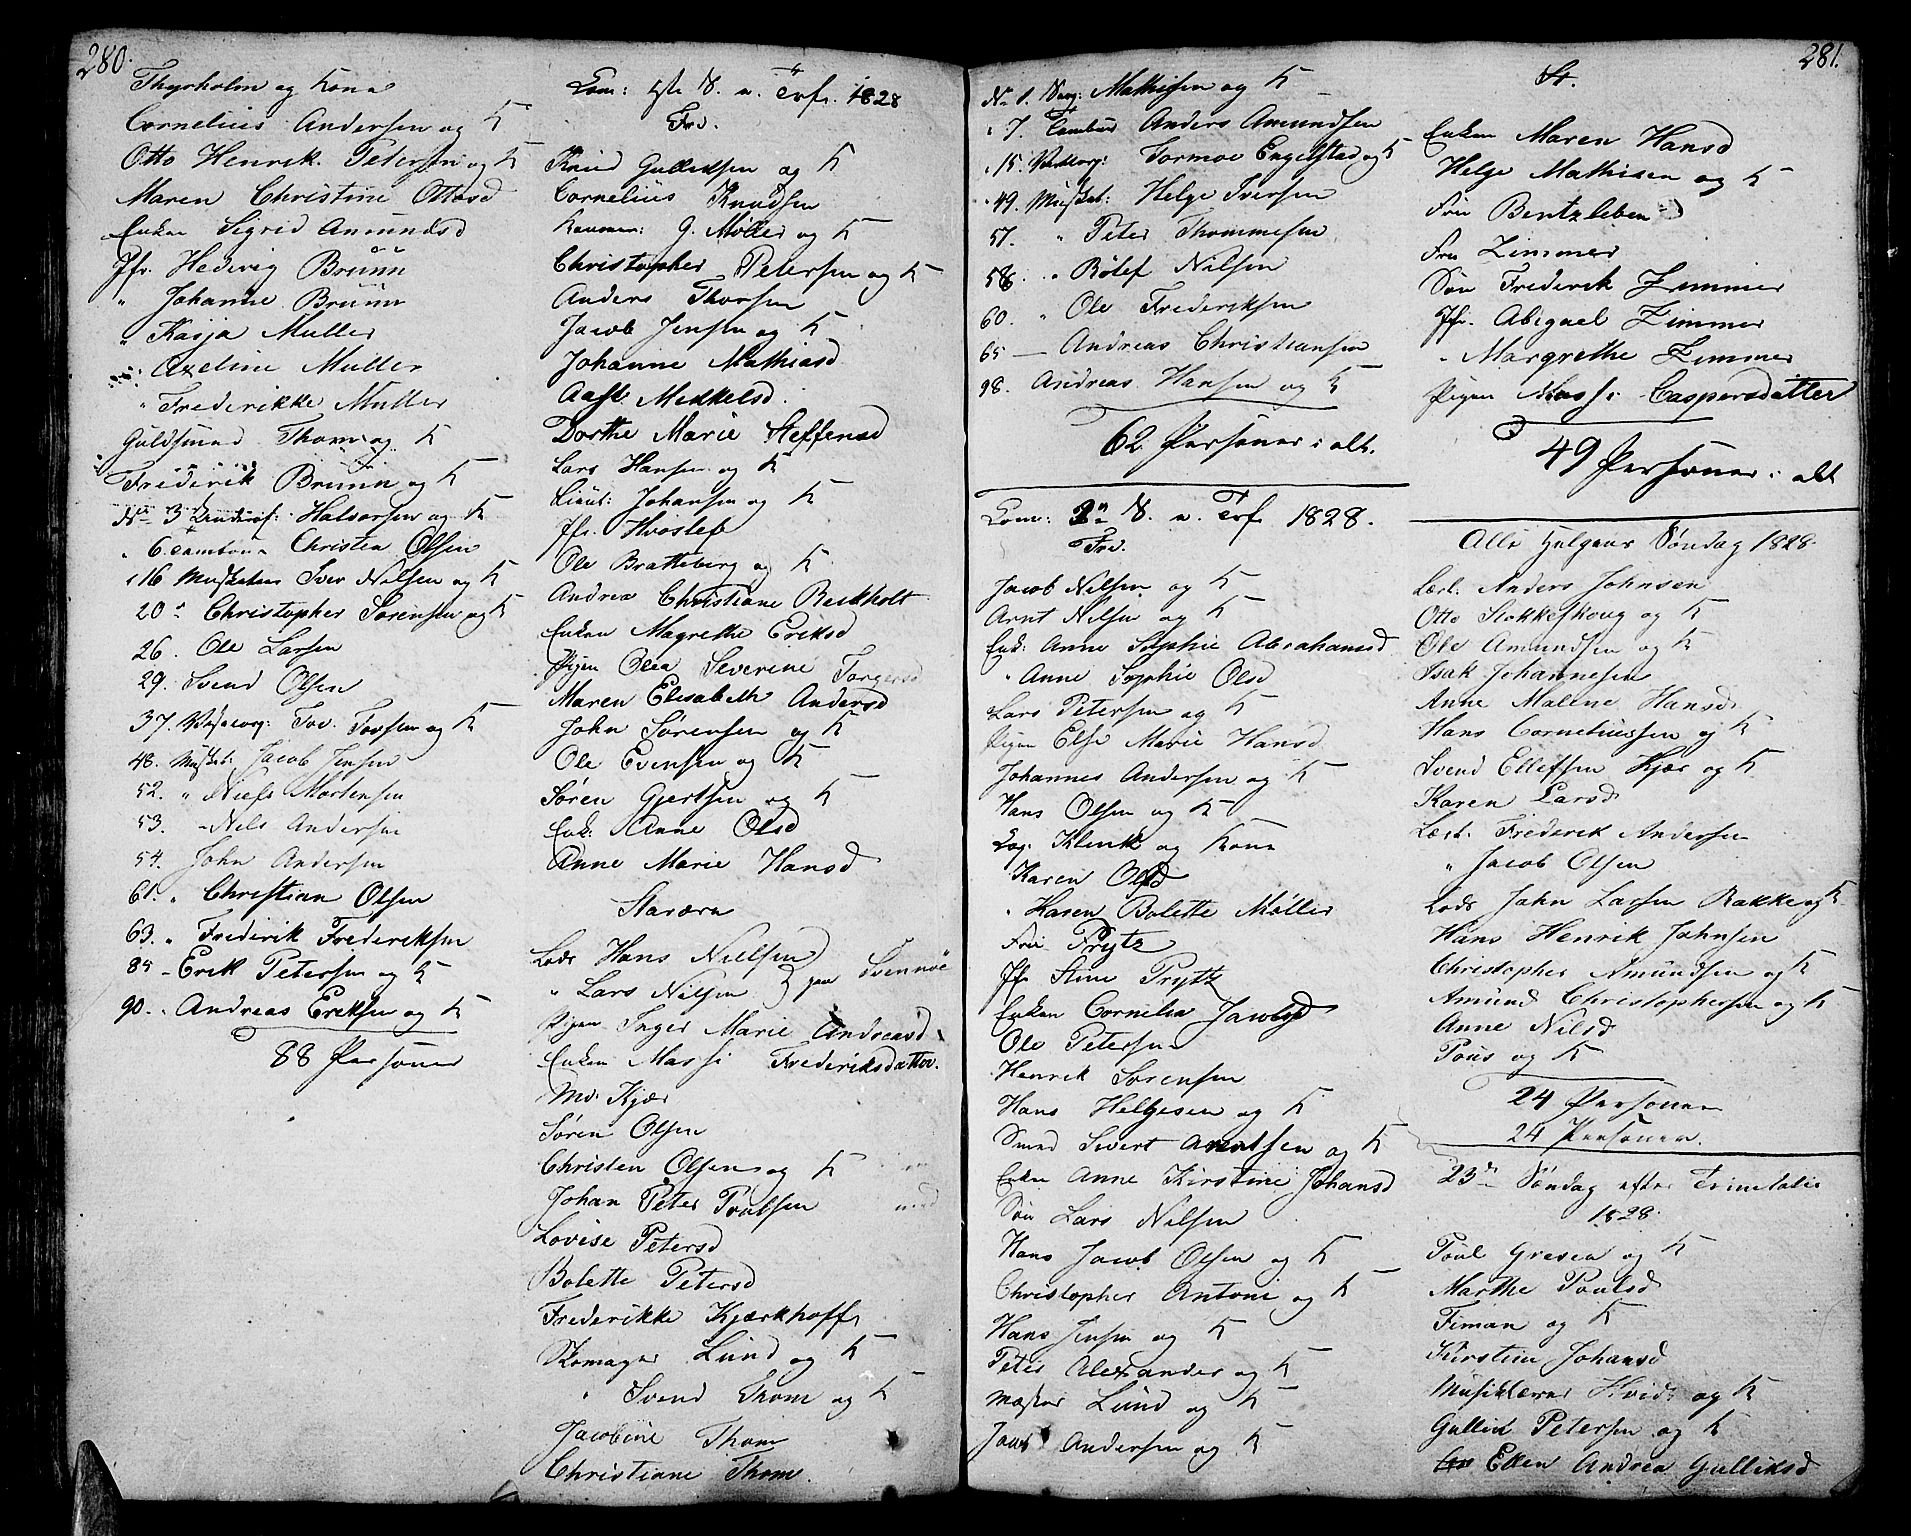 280.
Thyrholm og Kone
Cornelius Andersen og K
Otto Henrik Petersen og K
Maren Christine Ottosd
Enken Sigrid Amundsd
Jfr. Hedevig Bruun
" Johanne Bruun
" Kasja Muller
" Axeline Muller
" Frederikke Muller
Guldsmed Thom og K
Frederik Bruun og K
No 3 Underof: Halvorsen og K
" 6. Tambour Christen Olsen
" 16 Musketeer Iver Nilsen og K
20 " Christopher Sørensen og K
26. Ole Larsen
29. Svend Olsen
37. Vicecorp: Tov Tovsen og K
48. Musket: Jacob Jensen
52. " Niels Mortensen
53. - Nels Andersen
54. John Andersen
61. " Christian Olsen
63. " Frederik Frederiksen
85 - Erik Petersen og K
90. " Andreas Eriksen og K
88 Personer
Com: 1ste S. e. Tref. 1828
Frv.
Knud Gullichsen og K
Cornelius Knudsen
Kammer: G. Møller og K
Christopher Petersen og K
Anders Thorsen
Jacob Jensen og K
Johanne Mathiasd
Aase Mekkelsd.
Dorthe Marie Steffensd
Lars Hansen og K
Lieut: Johansen og K
Jfr. Hvoslef
Ole Bratteberg og K
Andrea Christiane Berkholt
Enken Magrethe Eriksd
Pigen Olea Severine Torgersd
Maren Elisabeth Andersd
John Sørensen og K
Ole Evensen og K
Søren Gjertsen og K
Enk: Anne Olsd
Anne Marie Hansd
Staværn
Lods Hans Nielsen
" Lars Nilsen } paa Svennøe
Pigen Inger Marie Andreasd
Enken Massi Frederiksdatter.
Md. Kjær
Søren Olsen
Christen Olsen og K
Johan Peter Poulsen
Lovise Petersd
Bolette Petersd
Frederikke Kjærkhoff
Skomager Lund og K
" Svend Thom og K
Jacobine Thom
Christiane Thom.
281.
No 1. Mathisen og K
" 7. Tambur Anders Amundsen
" 15. Vicecorp: Tormoe Engelstad og K
" 49. Musket: Helge Iversen
57. " Peter Thommesen
58. " Rølef Nilsen
60. " Ole Frederiksen
65 — Andreas Christiansen
98. Andreas Hansen og K
62 Personer i alt.
Com: 2n S. e. Tref 1828.
Frv.
Jacob Nilsen og K
Arnt Nilsen og K
Enk: Anne Sophie Abrahamsd
" Anne Sophie Olsd
Lars Petersen og K
Pigen Else Marie Hansd
Johannes Andersen og K
Hans Olsen og K
Log: Klenk og Kone
Karen Olsd
" Hasen Bolette Møller
Fru Prytz
Jfr Stine Prytz
Enken Cornelia Jacobsd
Ole Petersen
Henrik Sørensen
Hans Helgesen og K
Smed Sivert Arentsen og K
Enken Anne Kirstine Johansd
Søn Lars Nilsen
Hans Jacob Olsen og K
Christopher Antoni og K
Hans Jensen og K
Peter Alexander og K
Mæster Lund og K
Jans Andersen og K
St.
Enken Maren Hansd
Helge Mathisen og K
Fru Bentzleben
Fru Zimmer
Søn Frederik Zimmer
Jfr. Abigael Zimmer
" Margrethe Zimmer
Pigen Massi Caspersdatter
49 Personer i alt
Alle Helgens Søndag 1828.
Lærl: Anders Johnsen
Otto Stokkeskoug og K
Ole Amundsen og K
Isak Johannesen
Anne Malene Hansd
Hans Corneliussen og K
Svend Ellefsen Kjær og K
Karen Larsd
Lært. Frederik Andersen
" Jacob Olsen
Lods John Larsen Rakke og K
Hans Henrik Johnsen
Christopher Amundsen og K
Amund Christophersen og K
Anne Nilsd
Pous og K
24 Personer
24 Personer.
23de Søndag efter Trinitatis
1828.
Poul Gresen og K
Marthe Poulsd
Timan og K
Kirstine Johansd
Musiklærer Hvid og K
Gullik Petersen og K
Eken Andrea Gulliksd